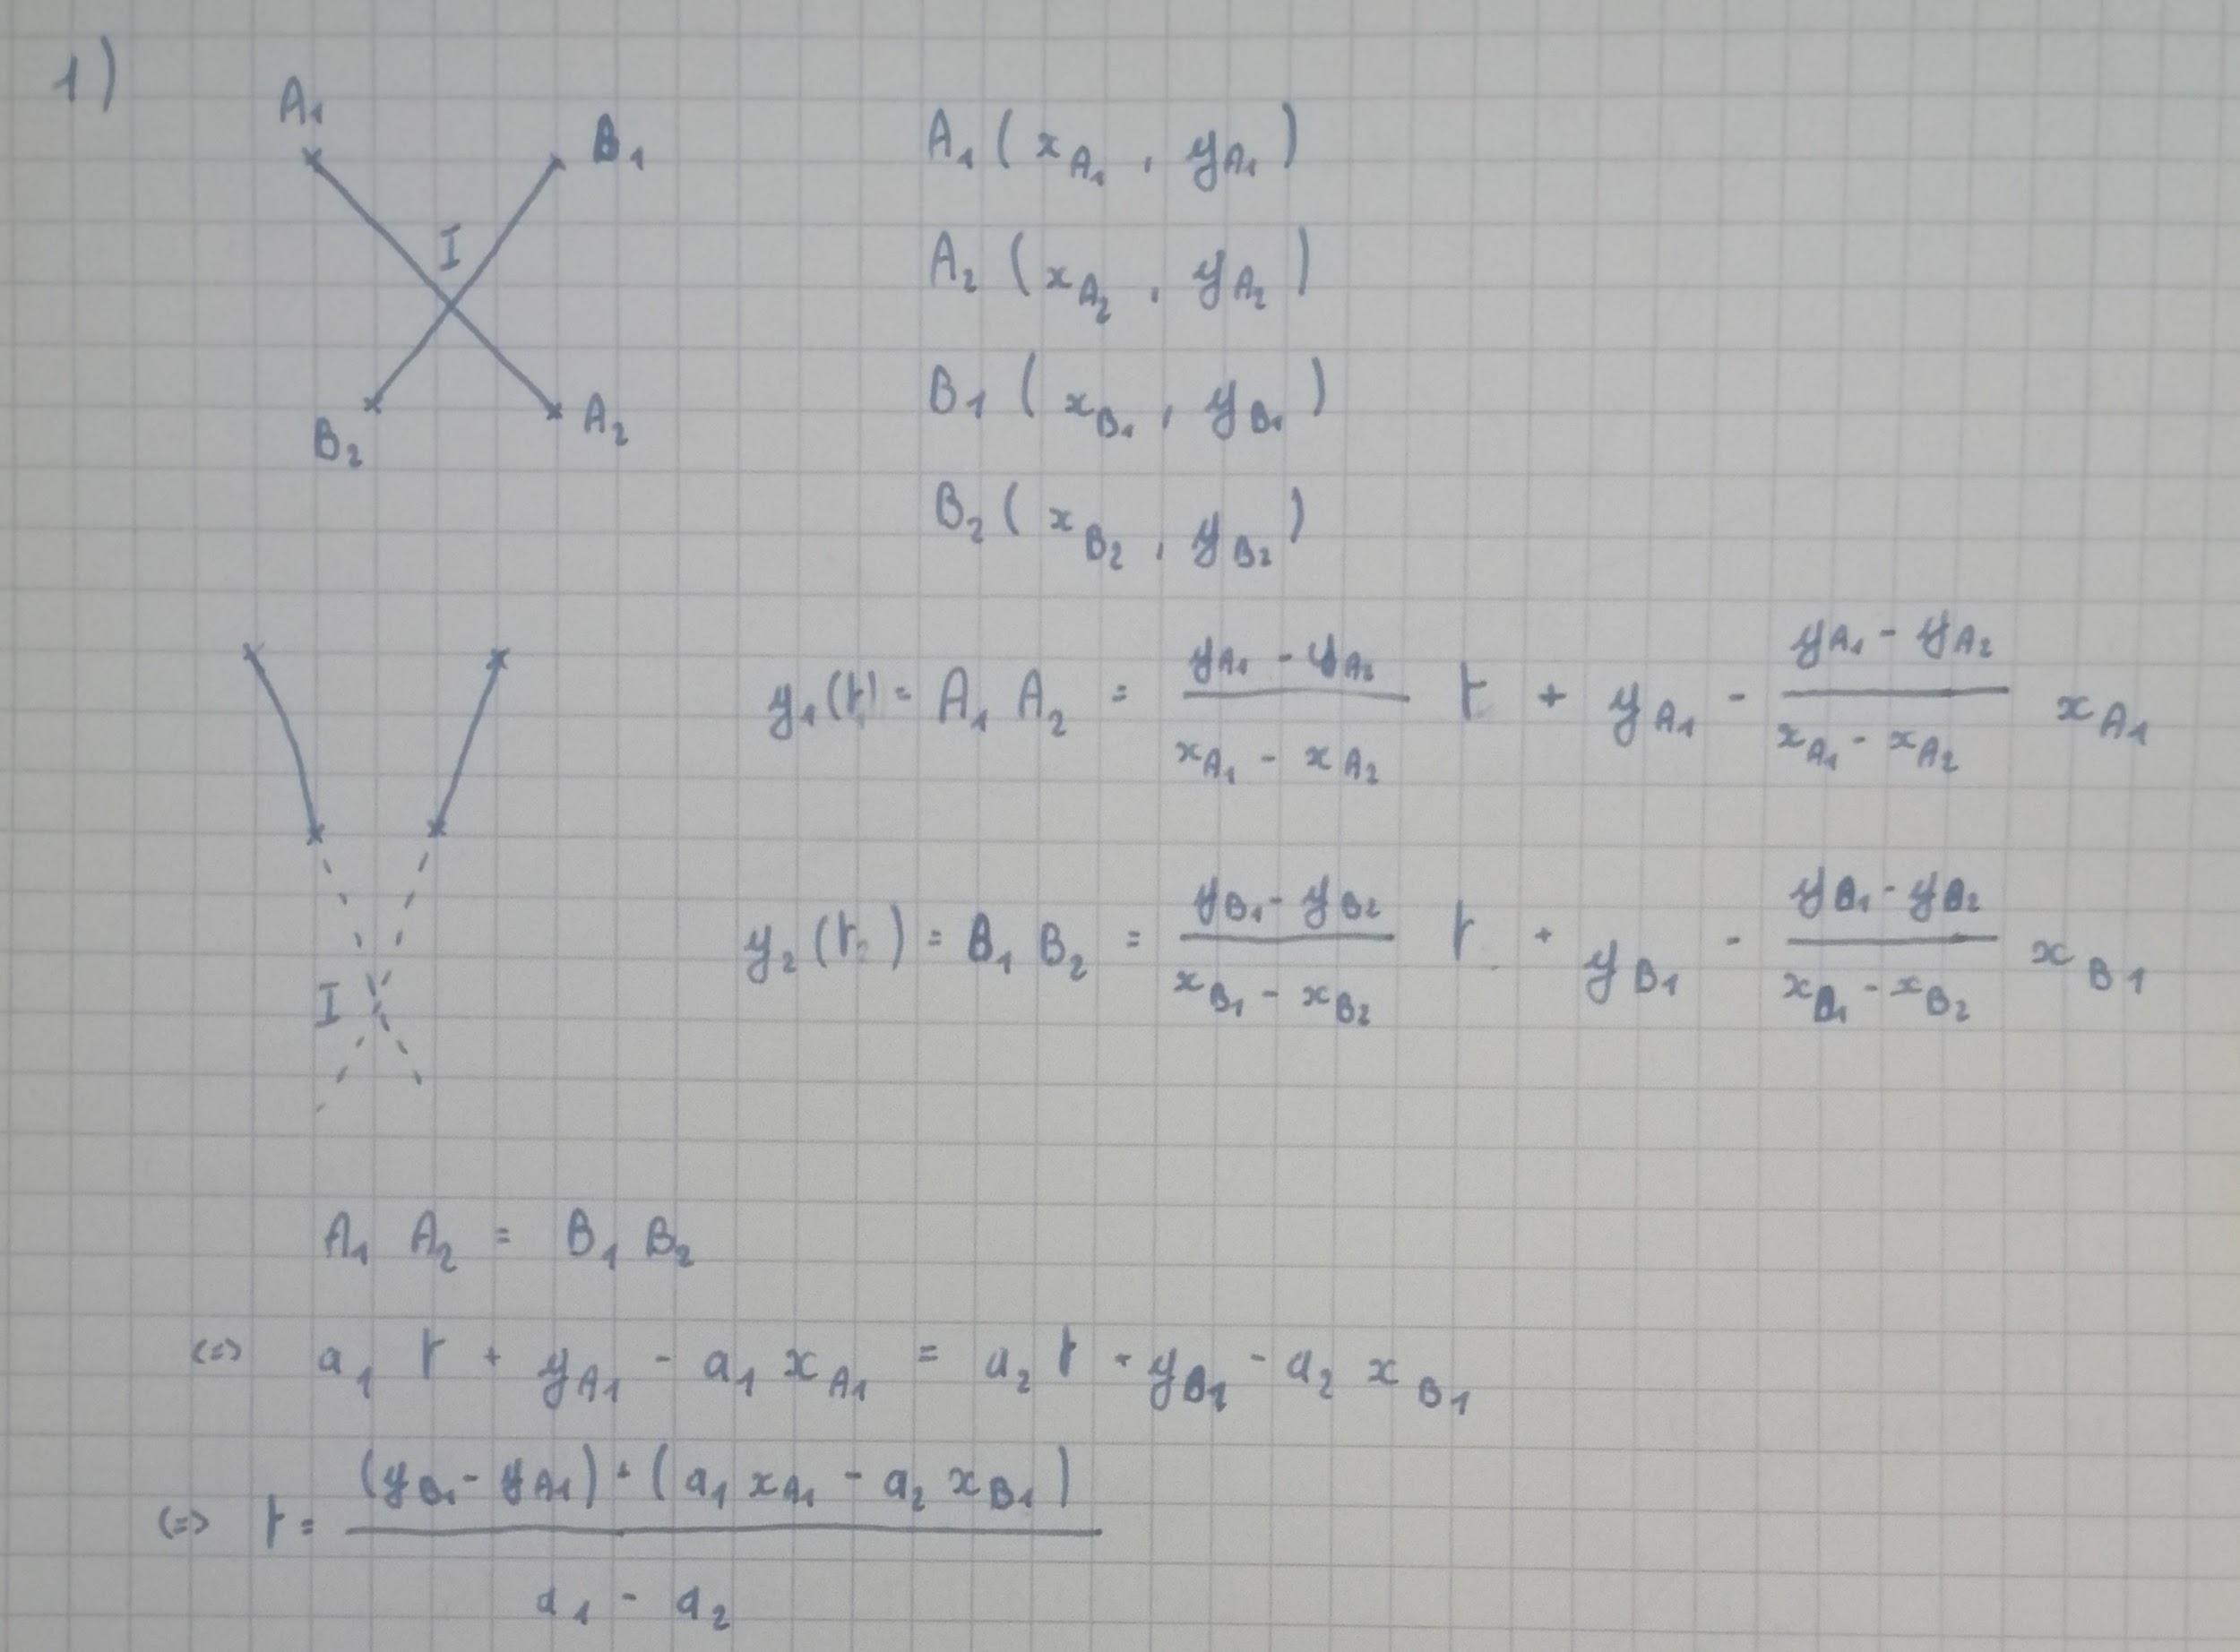 1)
A₁
B₁
I
B₂
A₂
A₁ ( x_A₁ , y_A₁ )
A₂ ( x_A₂ , y_A₂ )
B₁ ( x_B₁ , y_B₁ )
B₂ ( x_B₂ , y_B₂ )
y₁(t) = A₁ A₂ = (y_A₁ - y_A₂)/(x_A₁ - x_A₂) t + y_A₁ - (y_A₁ - y_A₂)/(x_A₁ - x_A₂) x_A₁
y₂(t) = B₁ B₂ = (y_B₁ - y_B₂)/(x_B₁ - x_B₂) t + y_B₁ - (y_B₁ - y_B₂)/(x_B₁ - x_B₂) x_B₁
I
A₁ A₂ = B₁ B₂
<=> a₁ t + y_A₁ - a₁ x_A₁ = a₂ t + y_B₁ - a₂ x_B₁
<=> t = ((y_B₁ - y_A₁) + (a₁ x_A₁ - a₂ x_B₁))/(a₁ - a₂)